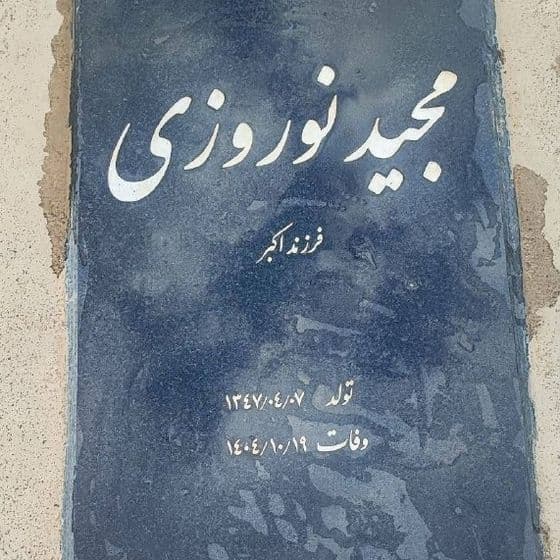 مجید نوروزی
فرزند اکبر
تولد ۱۳٤۷/۰٤/۰۷
وفات ۱٤۰٤/۱۰/۱۹